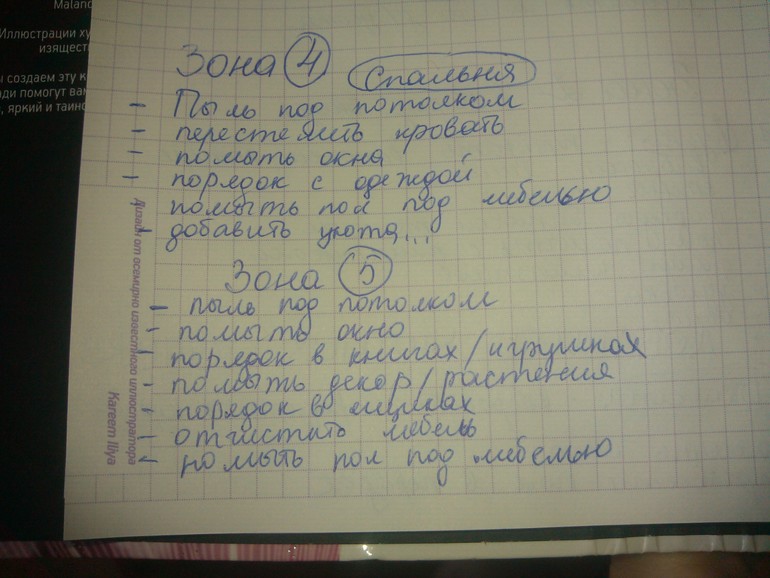 Maland
Иллюстрации ху
изящест
ы создаем эту к
ди помогут ва
, яркий и таино
Зона 4 Спальня
- Пыль под потолком
- перестелить кровать
- помыть окна
- порядок с одеждой
помыть пол под мебелью
- добавить уюта...
Зона 5
- пыль под потолком
- помыть окно
- порядок в книгах/игрушках
- помыть декор/растения
- порядок в ящиках
- отчистить мебель
- помыть пол под мебелью
Дизайн от всемирно известного иллюстратора
Kareem Iliya